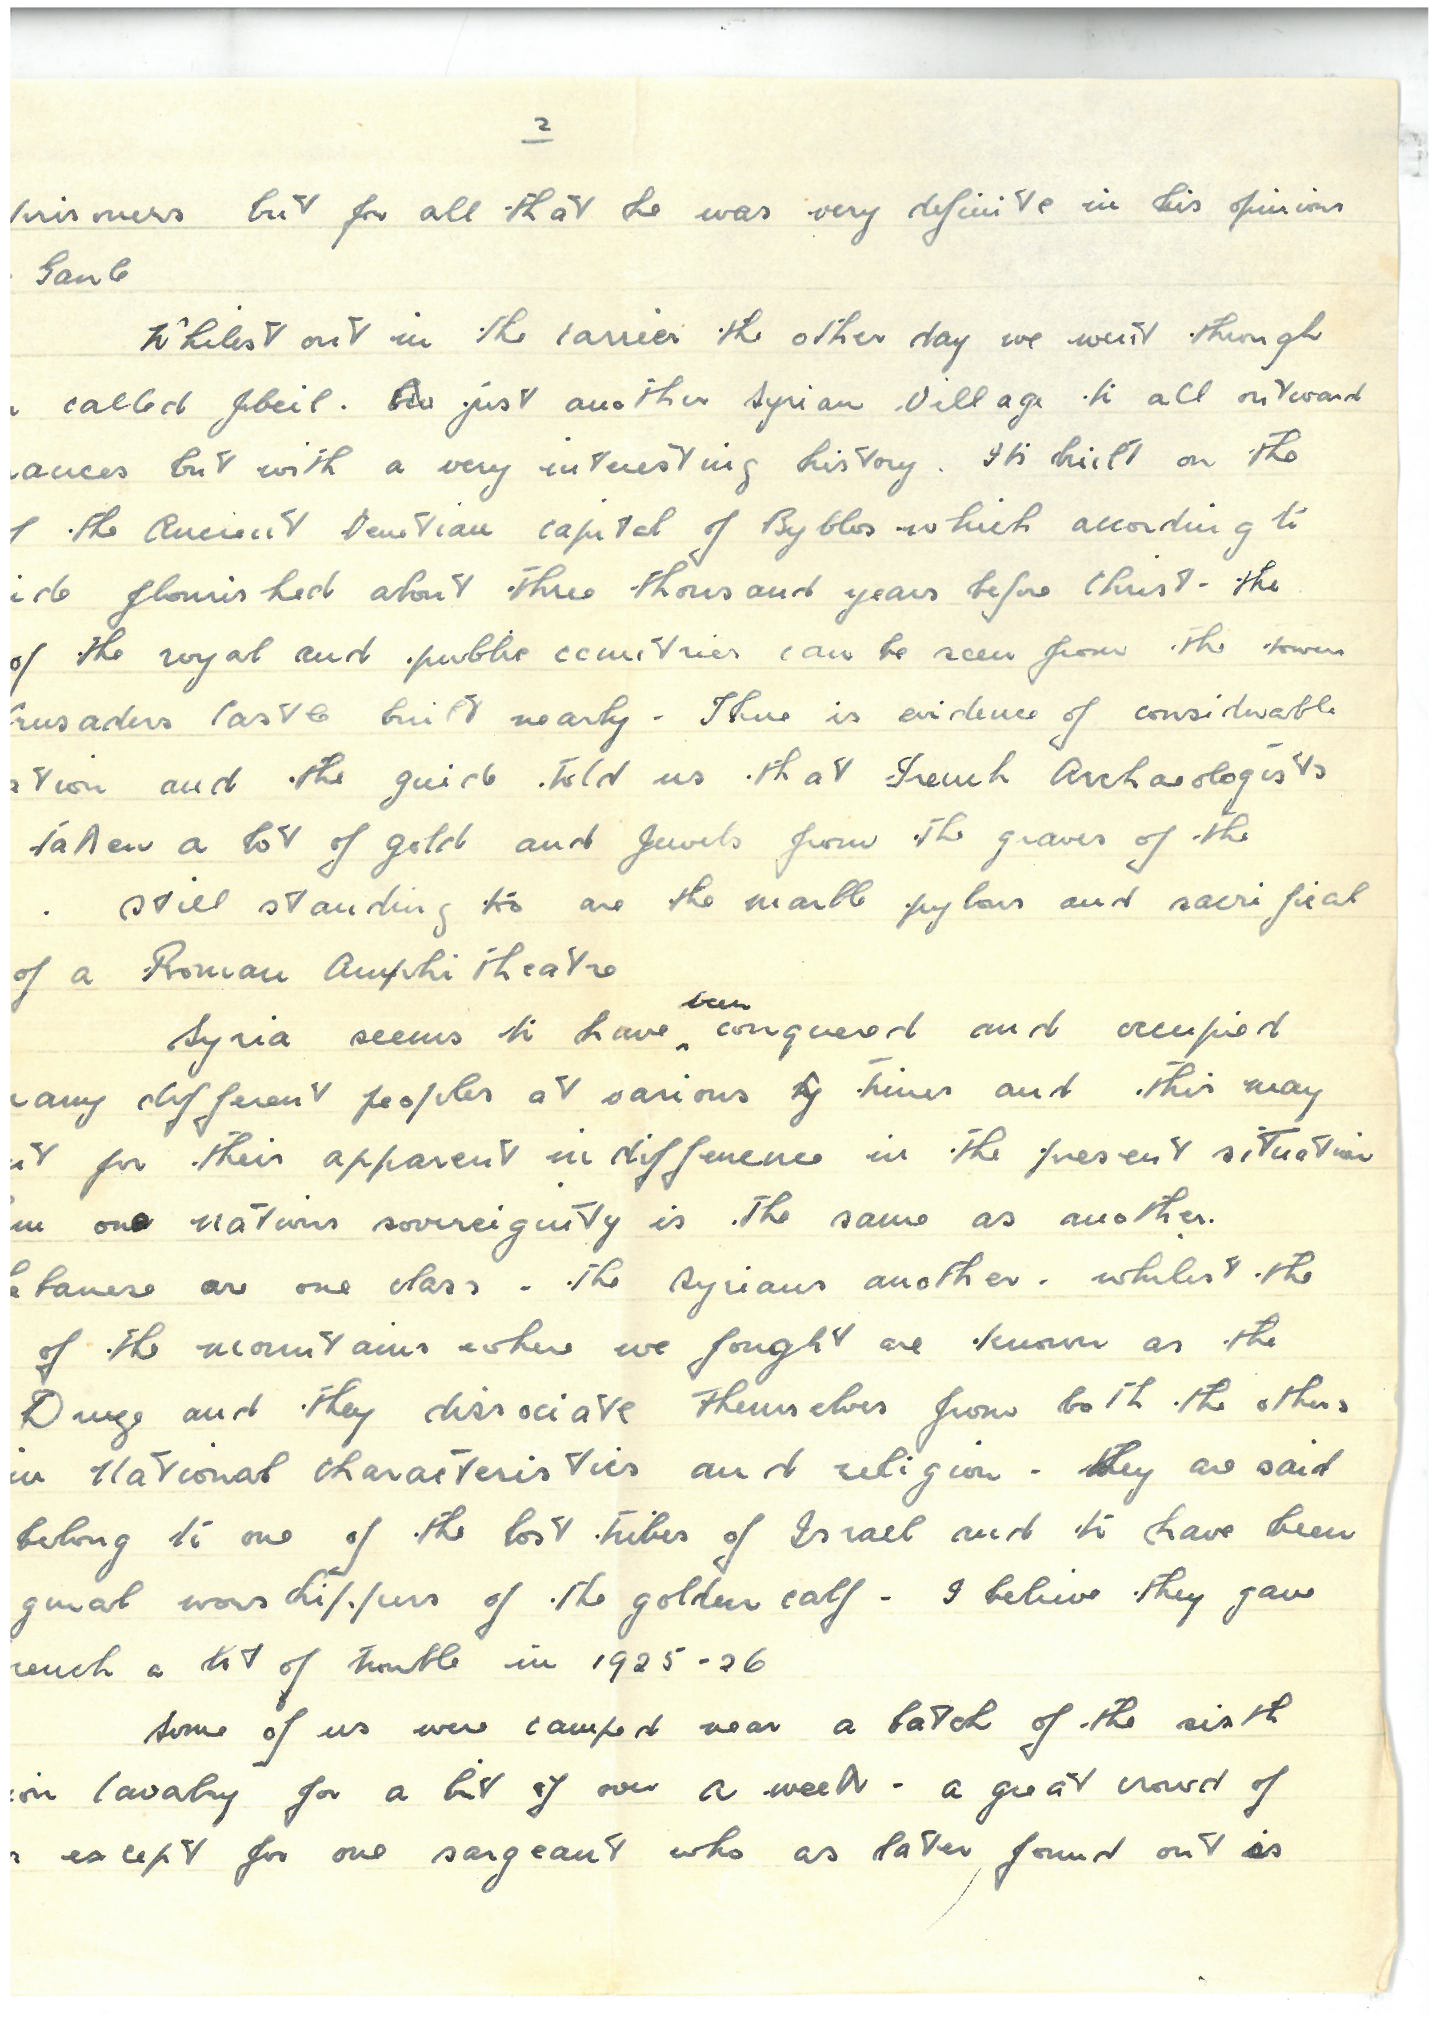 2
risoners but for all that he was very definite in his opinions
Whilst out in the carrier the other day we went through
called Jbeil. just another Syrian Village to all outward
ances but with a very interesting history. Its built on the
the Ancient Venetian capital of Byblos which according to
flourished about three thousand years before Christ - the
of the royal and public cemitries can be seen from the towers
rusaders Castle built nearby - There is evidence of considerable
ation and the guide told us that French Archaeologists
taken a lot of gold and Jewels from the graves of the
. Still standing to are the marble pylons and sacrificial
of a Roman Amphitheatre
Syria seems to have been conquered and occupied
any different peoples at various times and this may
nt for their apparent indifference in the present situation
one nations sovereignity is the same as another.
ebanese are one class - the Syrians another - whilst the
of the mountains where we fought are known as the
Druze and they dissociate themselves from both the others
in National characteristics and religion - they are said
belong to one of the lost tribes of Israel and to have been
ginal worshippers of the golden calf - I believe they gave
rench a lot of trouble in 1925-26
Some of us were camped near a batch of the sixth
ion Cavalry for a bit of over a week - a great crowd of
except for one sargeant who as later found out is